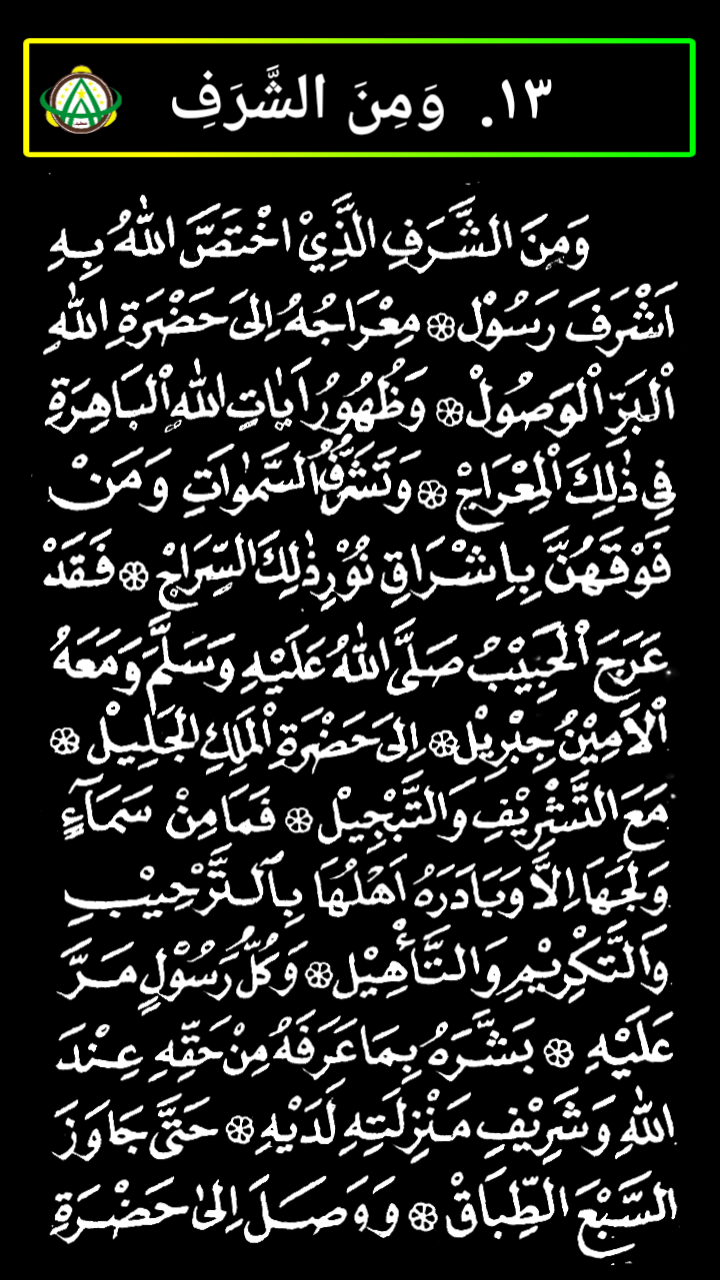 ١٣. وَمِنَ الشَّرَفِ
وَمِنَ الشَّرَفِ الَّذِيْ اخْتَصَّ اللّٰهُ بِهِ
اَشْرَفَ رَسُوْل ۞ مِعْرَاجُهُ اِلىَ حَضْرَةِ اللّٰهِ
اْلبَرِّ اْلوَصُوْلْ ۞ وَظُهُوْرُ اٰيَاتِ اللّٰهِ اْلبَاهِرَةِ
فِى ذٰلِكَ اْلمِعْرَاجْ ۞ وَتَشَرُّفُ السَّمٰوَاتِ وَمَنْ
فَوْقَهُنَّ بِاِشْرَاقِ نُوْرِ ذٰلِكَ السِّرَاجْ ۞ فَقَدْ
عَرَجَ اْلحَبِيْبُ صَلَّى اللّٰهُ عَلَيْهِ وَسَلَّمَ وَمَعَهُ
اْلاَمِيْنُ جِبْرِيْل ۞ اِلىَ حَضْرَةِ اْلمَلِكِ الْجَلِيْل ۞
مَعَ التَّشْرِيْفِ وَالتَّبْجِيْل ۞ فَمَا مِنْ سَمَآءٍ
وَلَجَهَا اِلاَّ وَبَادَرَهُ اَهْلُهَا بِالتَّرْحِيْبِ
وَالتَّكْرِيْمِ وَالتَّأْهِيْل ۞ وَكُلُّ رَسُوْلٍ مَرَّ
عَلَيْهِ ۞ بَشَّرَهُ بِمَا عَرَفَهُ مِنْ حَقِّهِ عِنْدَ
اللّٰهِ وَشَرِيْفِ مَنْزِلَتِهِ لَدَيْهِ ۞ حَتَّى جَاوَزَ
السَّبْعَ الطِّبَاقْ ۞ وَوَصَلَ اِلىٰ حَضْرَةِ